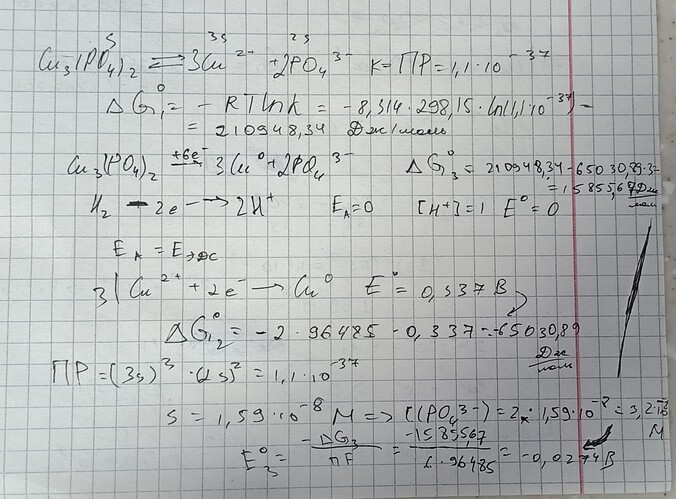 S 3S 2S
Cu₃(PO₄)₂ ⇄ 3Cu²⁻ + 2PO₄³⁻ K = ПР = 1,1·10⁻³⁷
ΔG₁⁰ = - RTlnK = -8,314·298,15·ln(1,1·10⁻³⁷) =
= 210948,34 Дж/моль
Cu₃(PO₄)₂ +6e⁻→ 3Cu⁰ + 2PO₄³⁻ ΔG₃⁰ = 210948,34 - 65030,89·3 =
= 15855,67 Дж/моль
H₂ - 2e⁻ → 2H⁺ E_A = 0 [H⁺] = 1 E⁰ = 0
E_A = E_ЭДС
3| Cu²⁺ + 2e⁻ → Cu⁰ E⁰ = 0,337 В
ΔG₂⁰ = -2·96485·0,337 = -65030,89
Дж/моль
ПР = (3s)³·(2s)² = 1,1·10⁻³⁷
S = 1,59·10⁻⁸ M => [(PO₄³⁻) = 2·1,59·10⁻⁸ = 3,2·10⁻⁸
M
E₃⁰ = -ΔG₃/nF = -15855,67/6·96485 = -0,0274 В